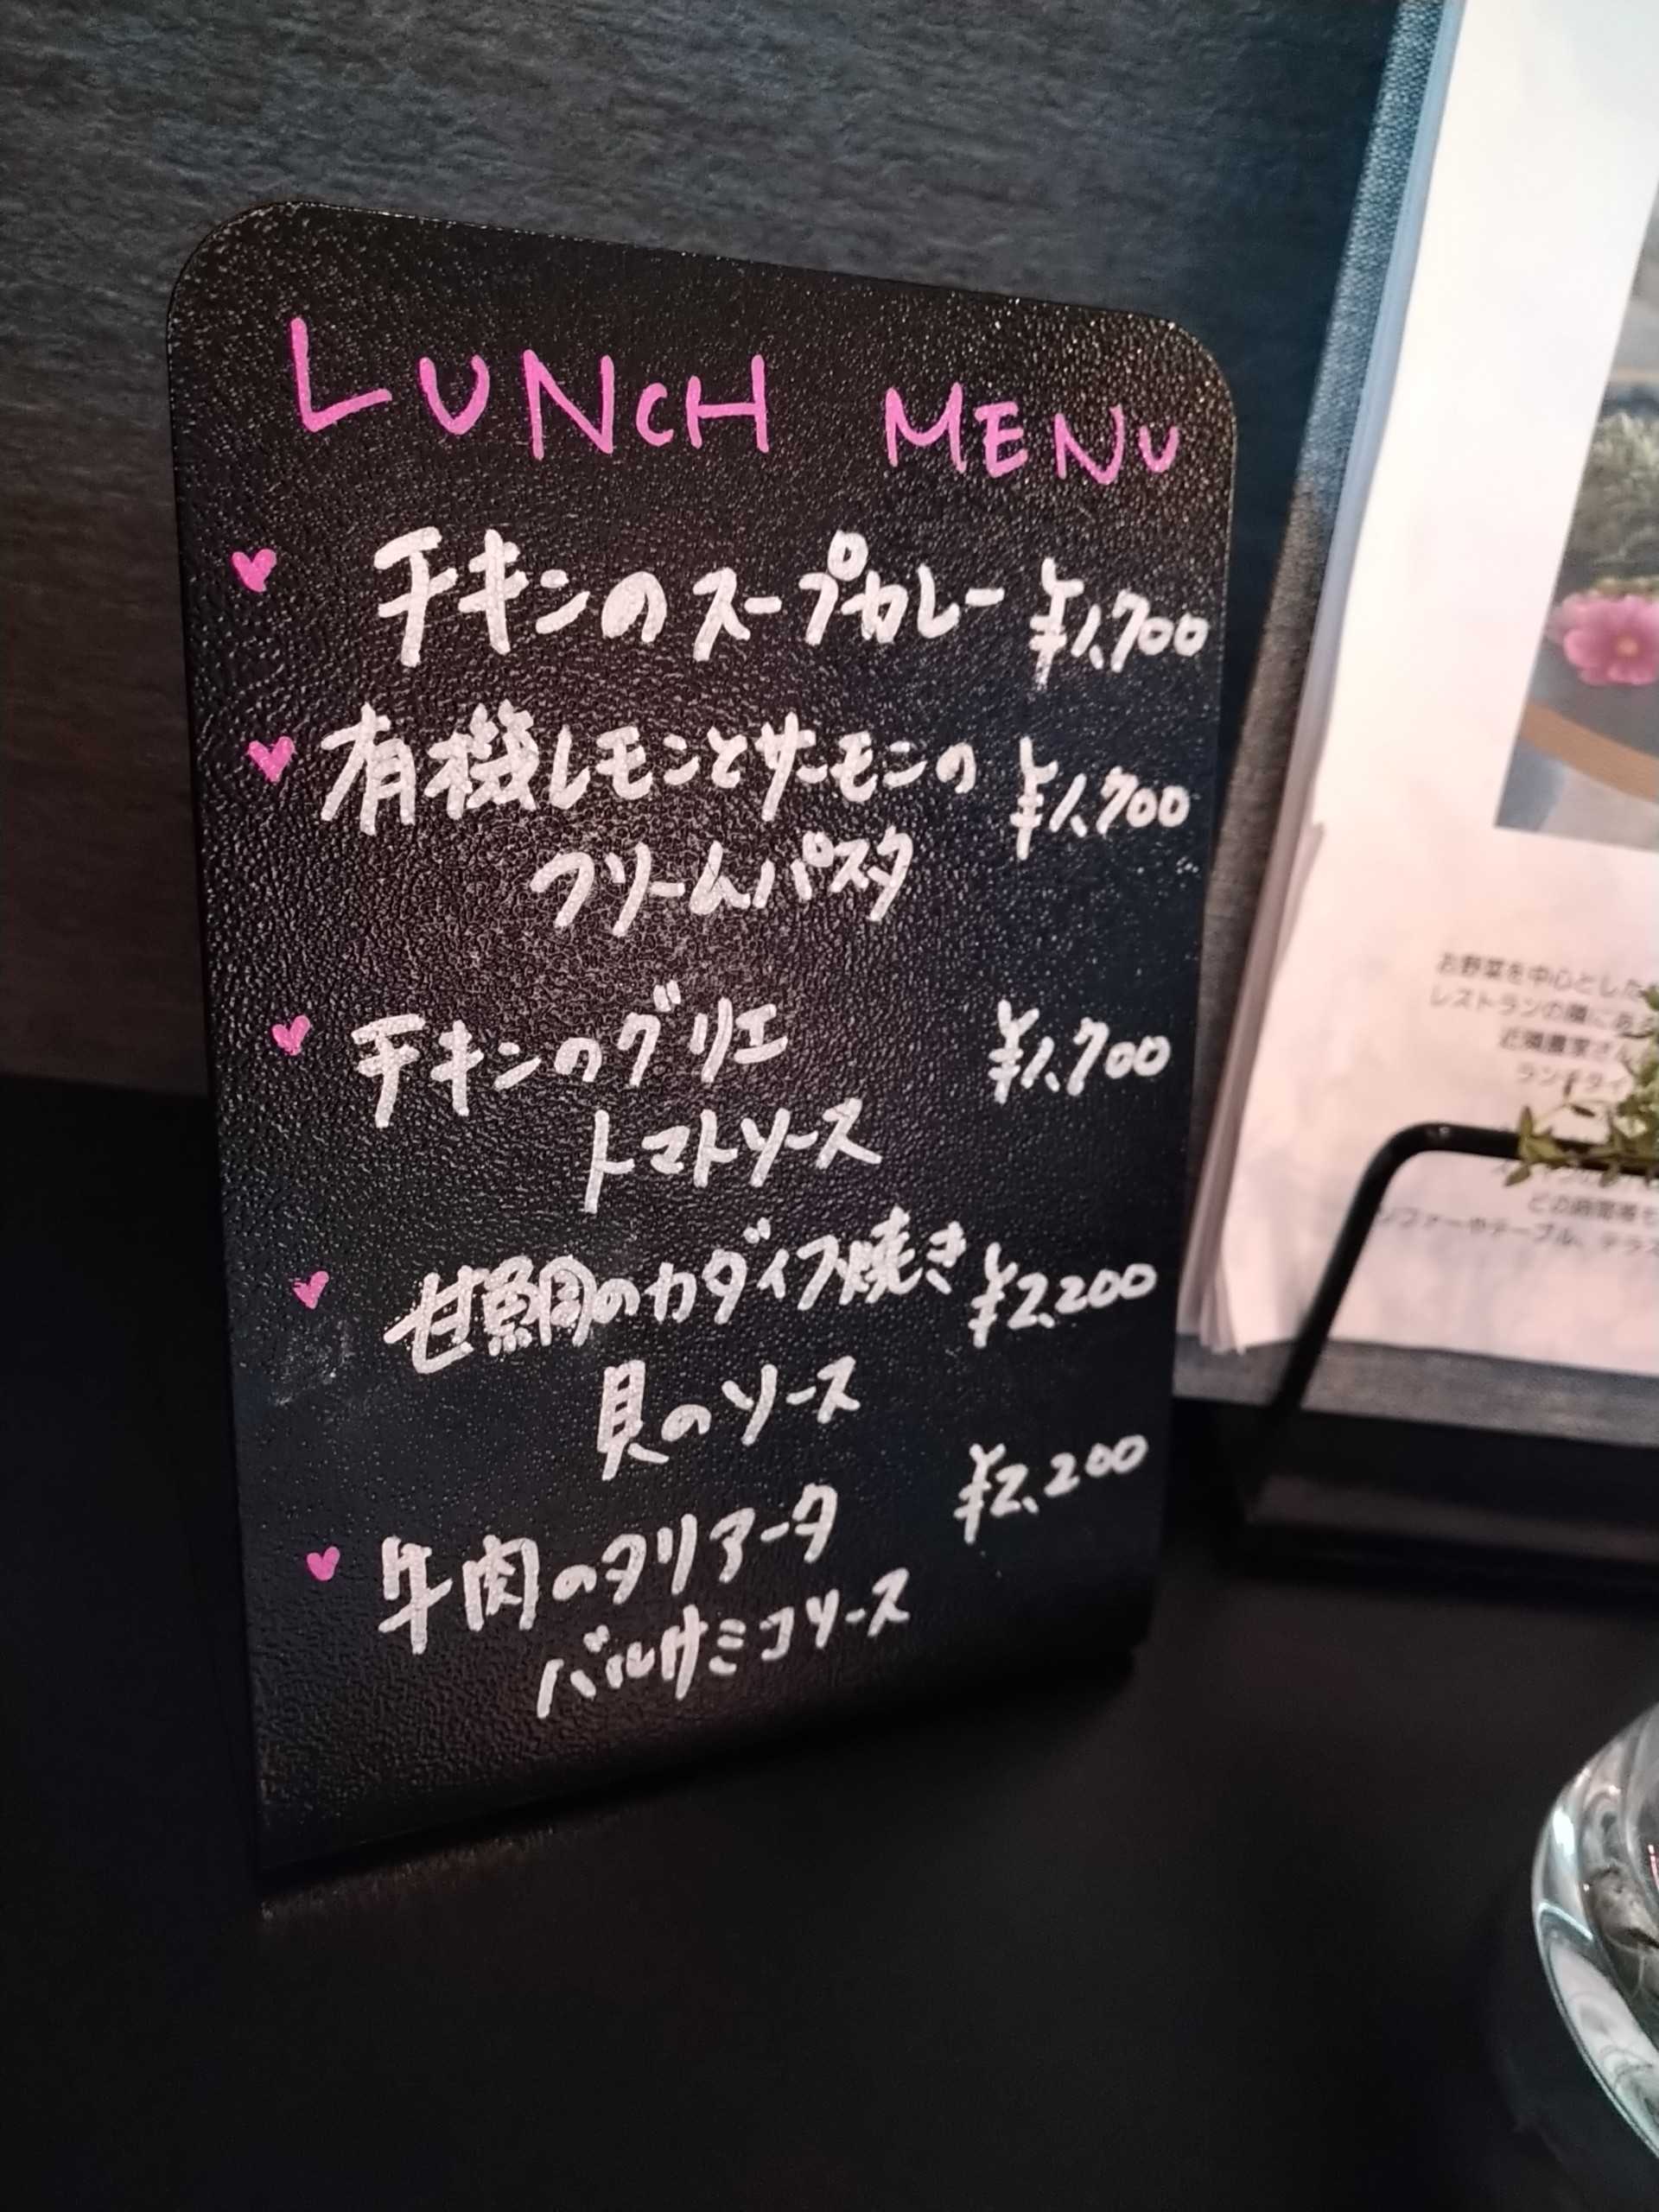 LUNCH MENU
チキンのスープカレー ¥1,700
有機レモンとサーモンの ¥1,700
クリームパスタ
チキンのグリエ ¥1,700
トマトソース
甘鯛のカダイフ焼き ¥2,200
貝のソース
牛肉のタリアータ ¥2,200
バルサミコソース
お野菜を中心とした
レストランの隣にあ
近隣農家さん
ランチタイ
どの時間帯も
ソファーやテーブル、テラス